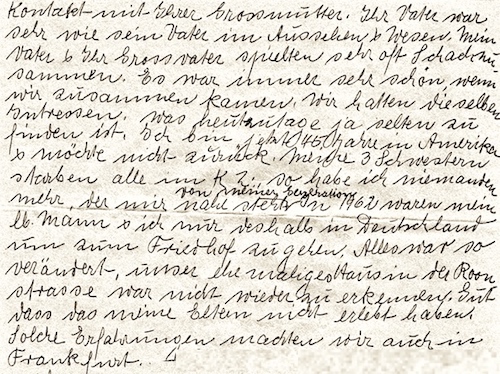 Kontakt mit Ihrer Grossmutter. Ihr Vater war
sehr wie sein Vater im Aussehen & Wesen. Mein
Vater & Ihr Grossvater spielten sehr oft Schach zu
sammen. Es war immer sehr schön wenn
wir zusammen kamen. Wir hatten dieselben
Intressen. was heutzutage ja selten zu
finden ist. Ich bin jetzt 45 Jahre in Amerika
& möchte nicht zurück. Meine 3 Schwestern
starben alle im K Z. so habe ich niemanden
von meiner Generation
mehr, der mir nahe steht. In 1962 waren mein
lb. Mann & ich nur deshalb in Deutschland
um zum Friedhof zu gehen. Alles war so
verändert, unser ehemaliges Haus in der Roon
strasse war nicht wieder zu erkennen. Gut
dass das meine Eltern nicht erlebt haben.
Solche Erfahrungen machten wir auch in
Frankfurt.